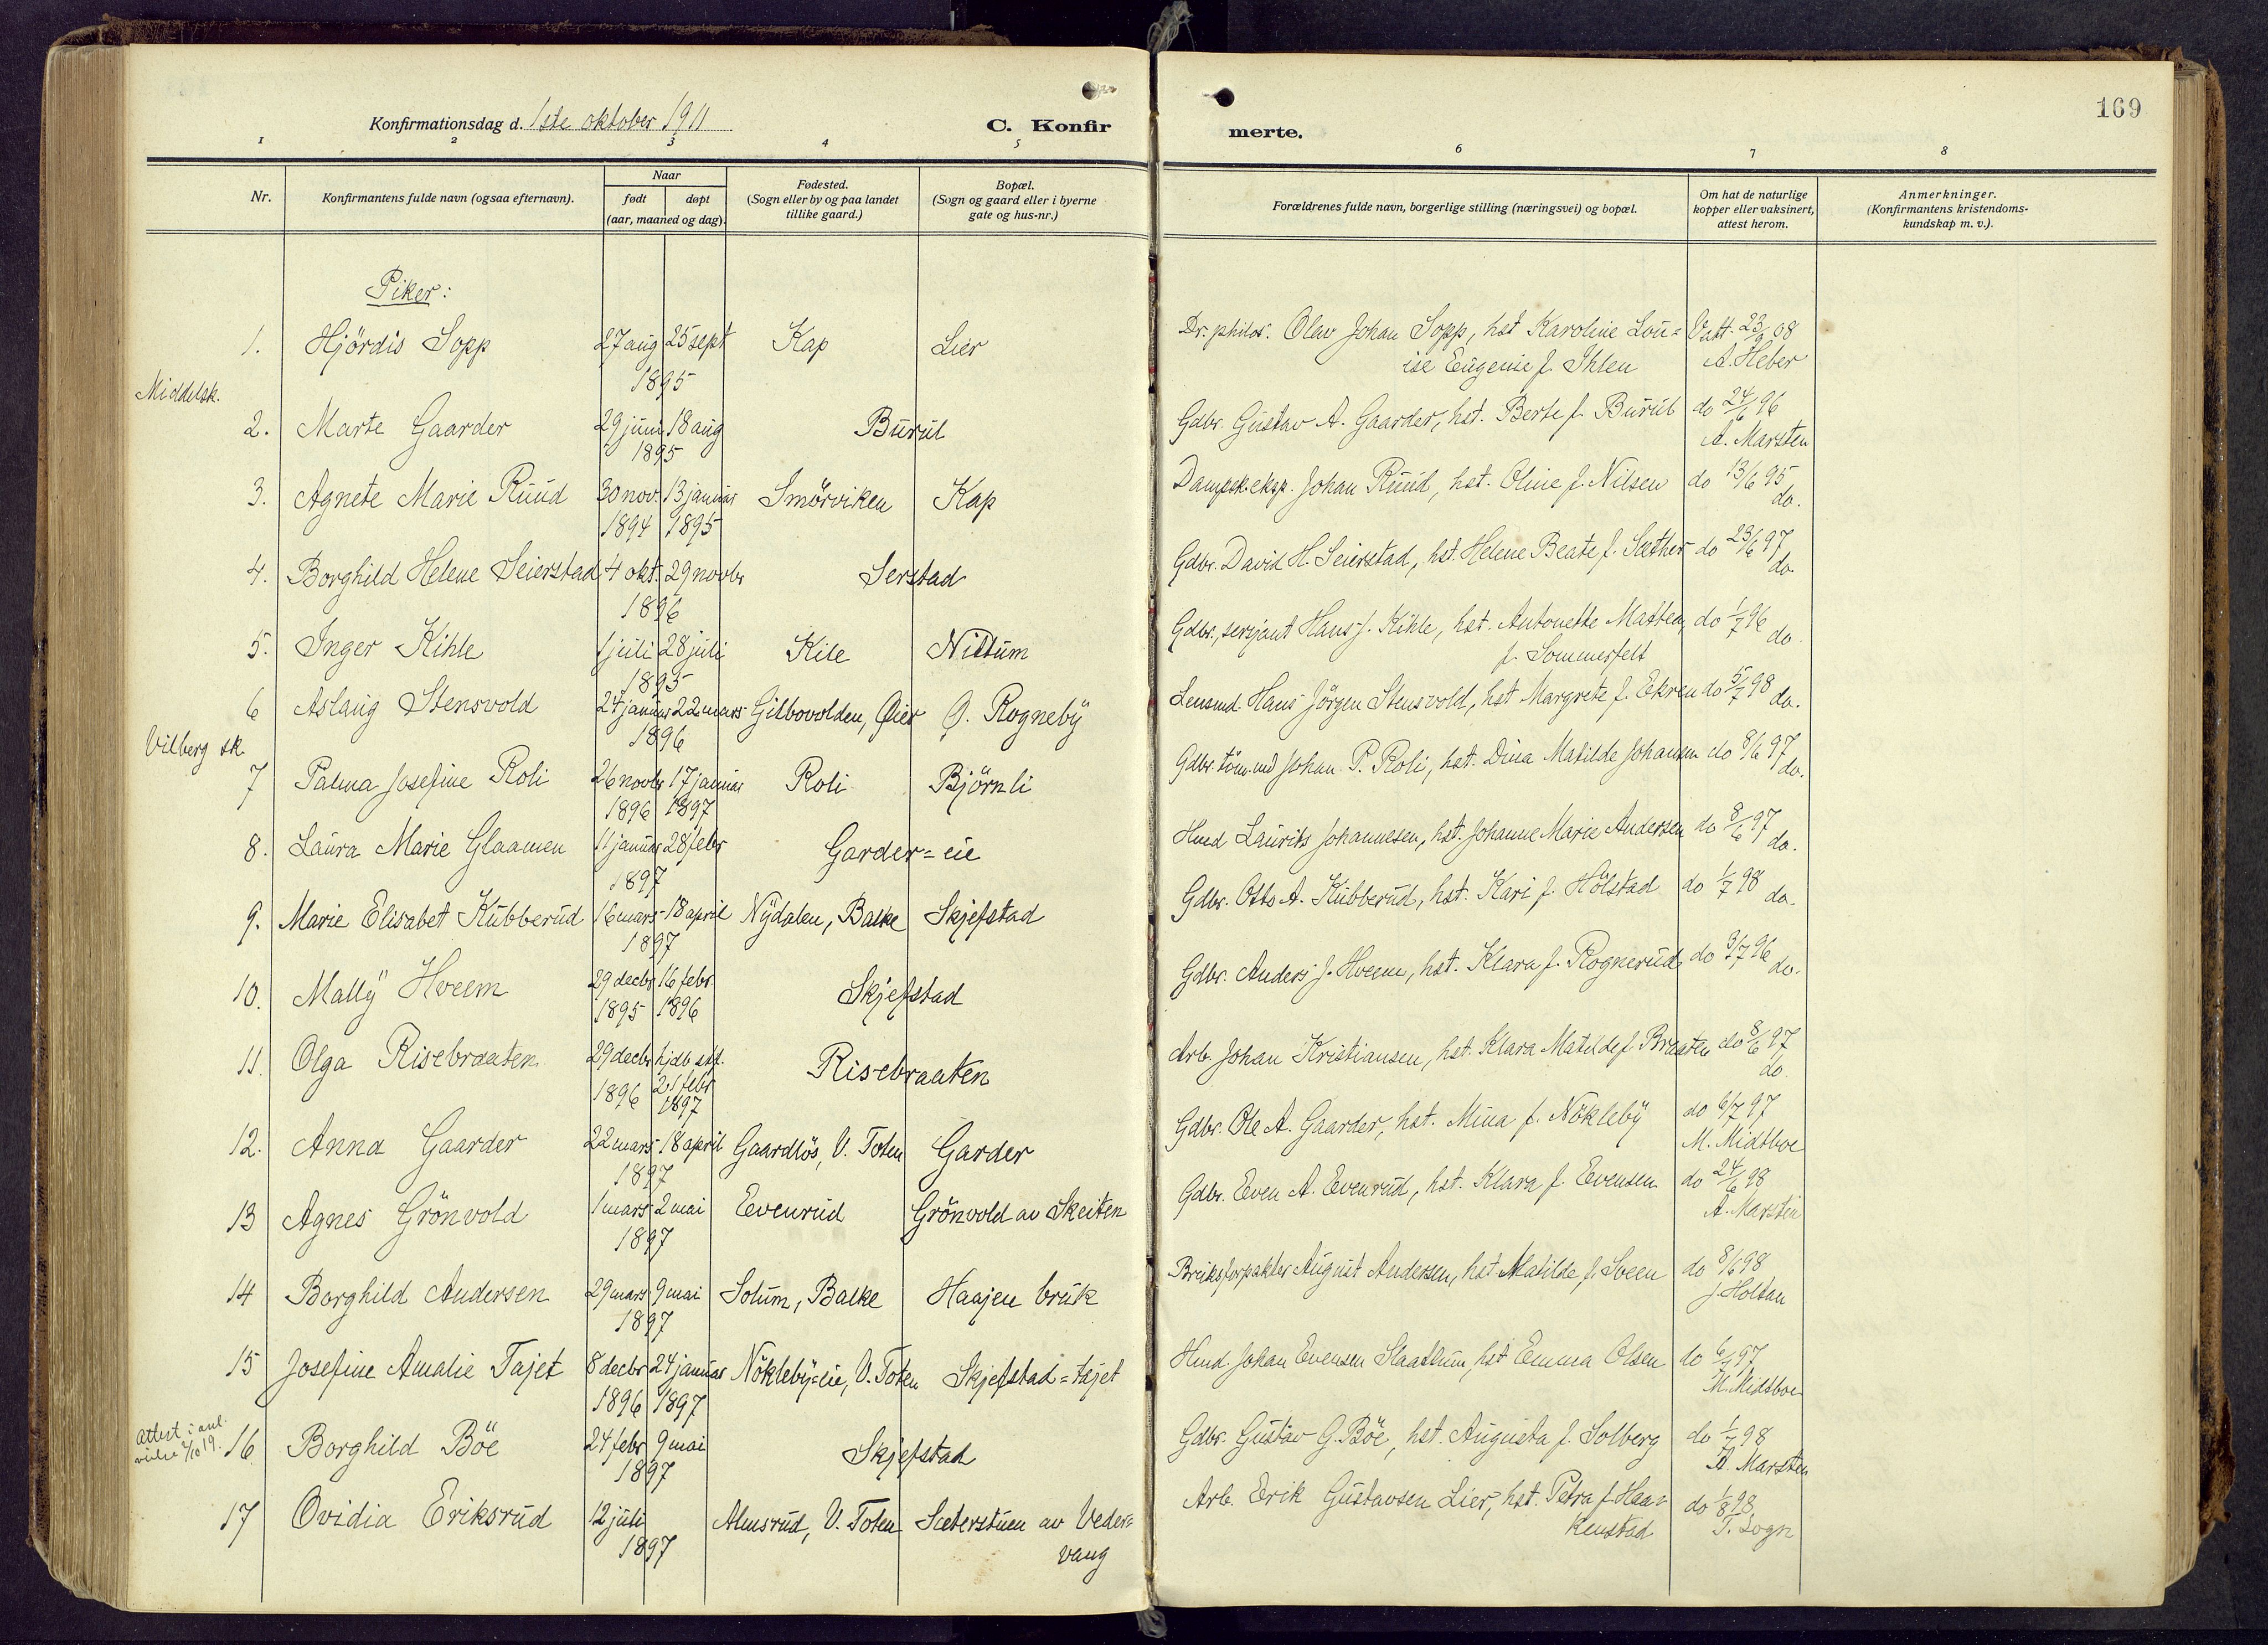 169
Konfirmationsdag d. 1ste oktober 1911
C. Konfirmerte.
1 2 3 4 5 6 7 8
Nr.
Konfirmantens fulde navn (ogsaa efternavn).
Naar
født døpt
(aar, maaned og dag).
Fødested.
(Sogn eller by og paa landet
tillike gaard.)
Bopæl.
(Sogn og gaard eller i byerne
gate og hus-nr.)
Forældrenes fulde navn, borgerlige stilling (næringsvei) og bopæl.
Om hat de naturlige
kopper eller vaksinert,
attest herom.
Anmerkninger.
(Konfirmantens kristendoms-
kundskap m. v.).
Piker:
1. Hjördis Sopp 27 aug 25 sept Kap Lier Dr. philos. Olav Johan Sopp, hst Karoline Lou= Vatt. 23/9 08
1895 ise Eugenie f. Ihlen A. Heber
Middelsk.
2. Marte Gaarder 29 juni 18 aug Burul Gdbr. Gustav A. Gaarder, hst. Berte f. Burul do 24/6 96
1895 A. Marsten
3. Agnete Marie Ruud 30 nov. 13 januar Smörviken Kap Dampsk.eksp. Johan Ruud, hst. Oline f. Nilsen do 13/6 95
1894 1895 do.
4. Borghild Helene Seierstad 4 okt. 29 novbr Serstad Gdbr. David H. Seierstad, hst. Helene Beate f. Sæther do 23/6 97
1896 do
5. Inger Kihle 1 juli 28 juli Kile Niltum Gdbr., serjant Hans J. Kihle, hst. Antonette Mattea, do 1/7 96
1895 f. Sommerfelt do.
6 Aslaug Stensvold 24 januar 22 mars Gilbovolden, Øier Ø. Rogneby Lensmd. Hans Jörgen Stensvold, hst Margrete f. Ekren do 5/7 98
1896 do.
Vilberg sk.
7 Palma Josefine Roli 26 novbr 17 januar Roli Björnli Gdbr. töm.md Johan P. Roli, hst. Dina Matilde Johansen do 8/6 97
1896 1897 do.
8. Laura Marie Glaamen 11 januar 28 febr Garder=eie Hmd Laurits Johannesen, hst. Johanne Marie Andersen do 8/6 97
1897 do.
9. Marie Elisabet Kubberud 16 mars 18 april Nydalen, Balke Skjefstad Gdbr. Otto A. Kubberud, hst. Kari f. Holstad do 1/7 98
1897 do.
10. Mally Hveem 29 decbr 16 febr. Skjefstad Gdbr. Anders J. Hveem, hst. Klara f. Rognerud do 3/7 96
1895 1896 do.
11. Olga Risebraaten 29 decbr hjdb. stf. Risebraaten Arb. Johan Kristiansen, hst. Klara Matilde f. Braaten do 8/6 97
1896 21 febr do
1897
12. Anna Gaarder 22 mars 18 april Gaardlös, V. Toten Garder Gdbr. Ole A. Gaarder, hst. Mina f. Nökleby do 6/7 97
1897 M. Midtboe
13 Agnes Grönvold 1 mars 2 mai Evenrud Grönvold av Skeiten Gdbr. Even A. Evenrud, hst. Klara f. Evensen do 24/6 98
1897 A. Marsten
14 Borghild Andersen 29 mars 9 mai Solum, Balke Haajen bruk Bruksforpakter August Andersen, hst Matilde f. Sveen do 8/6 98
1897 J. Holtan
15 Josefine Amalie Tajet 8 decbr 24 januar Nökleby=eie, V. Toten Skjefstad=tajet Hmd. Johan Evensen Slaatlum, hst Emma Olsen do 6/7 97
1896 1897 M. Midtboe
attest i anl.
vielse 2/10 19.
16 Borghild Böe 24 febr 9 mai Skjefstad Gdbr. Gustav G. Böe, hst. Augusta f. Solberg do 1/7 98
1897 A. Marsten
17 Ovidia Eriksrud 12 juli Almsrud, V. Toten Sæterstuen av Veder= Arb. Erik Gustavsen Lier, hst. Petra f. Haa= do 1/8 98
1897 vang kenstad T. Sogn